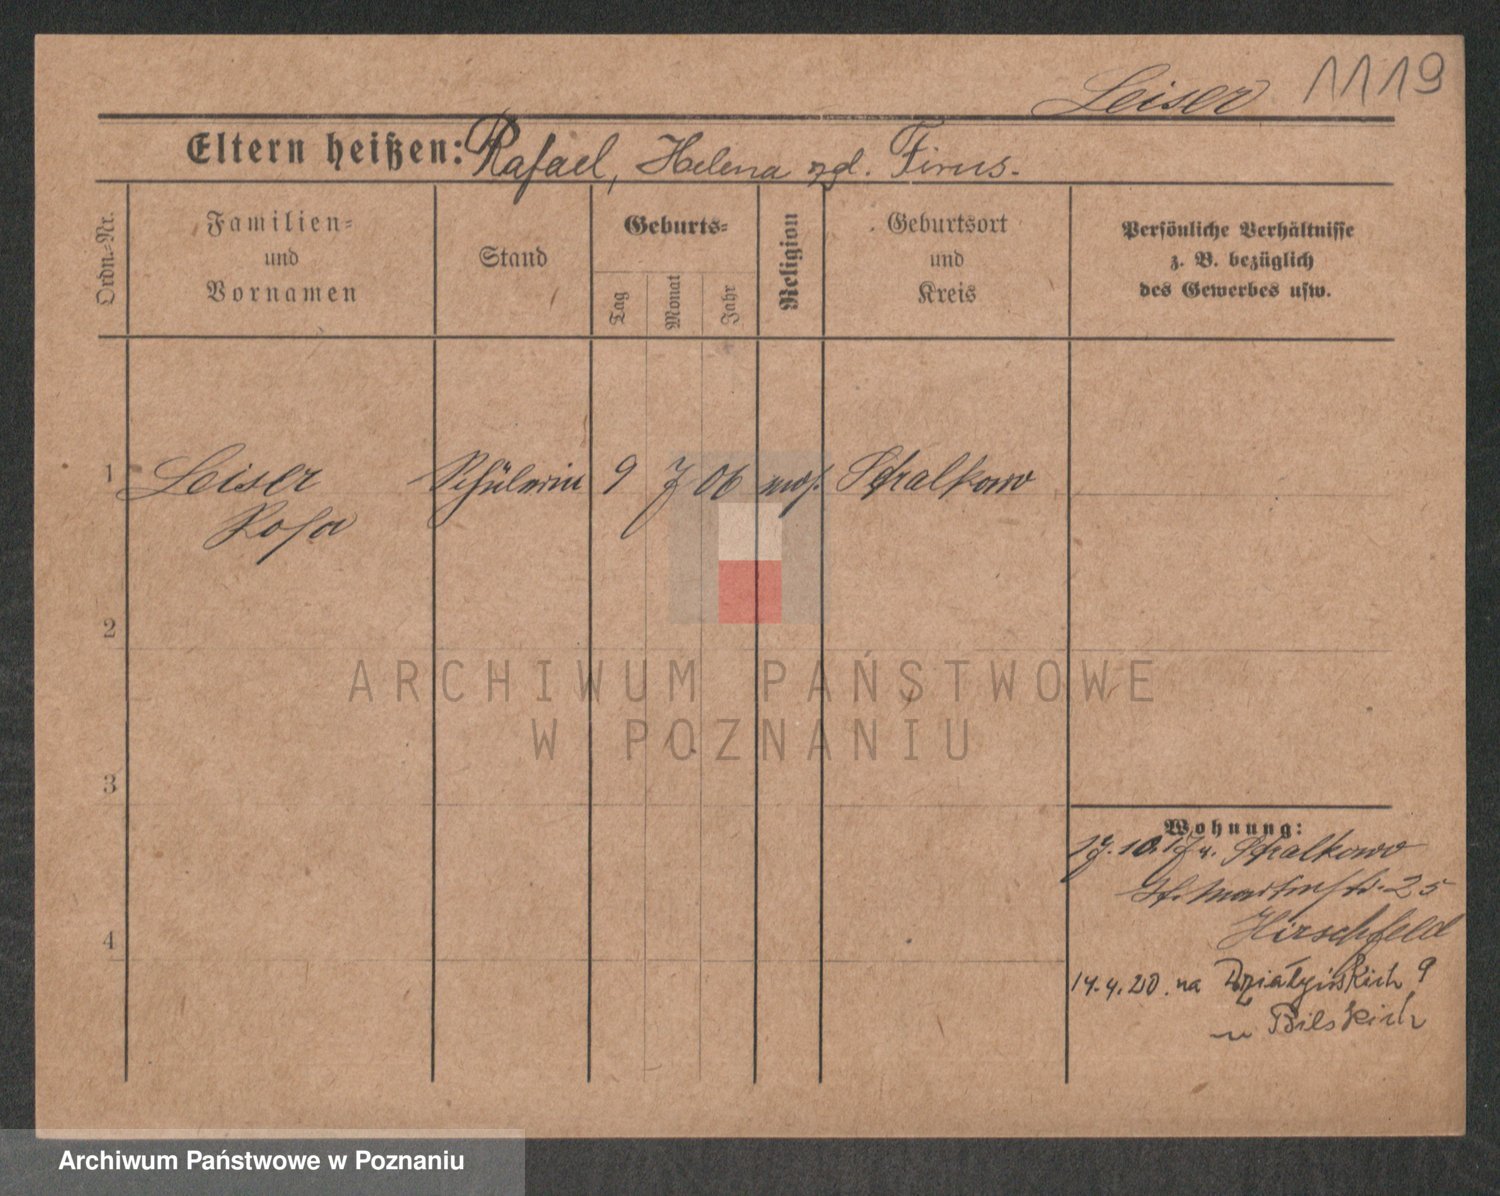 Leiser 1119
Eltern heißen: Rafael, Helena zgl. Firus.
Ordn.=Nr.
Familien=
und
Vornamen
Stand
Geburts=
Tag
Monat
Jahr
Religion
Geburtsort
und
Kreis
Persönliche Verhältnisse
z. B. bezüglich
des Gewerbes usw.
1 Leiser Schülerin 9 7 06 mos. Stralkowo
Rosa
2
3
4
Wohnung:
17.10.17 v. Stralkowo
St. Martinstr. 25
Hirschfeld
14.4.20. na Działyńskich 9
u Bilskich
ARCHIWUM PAŃSTWOWE
W POZNANIU
Archiwum Państwowe w Poznaniu